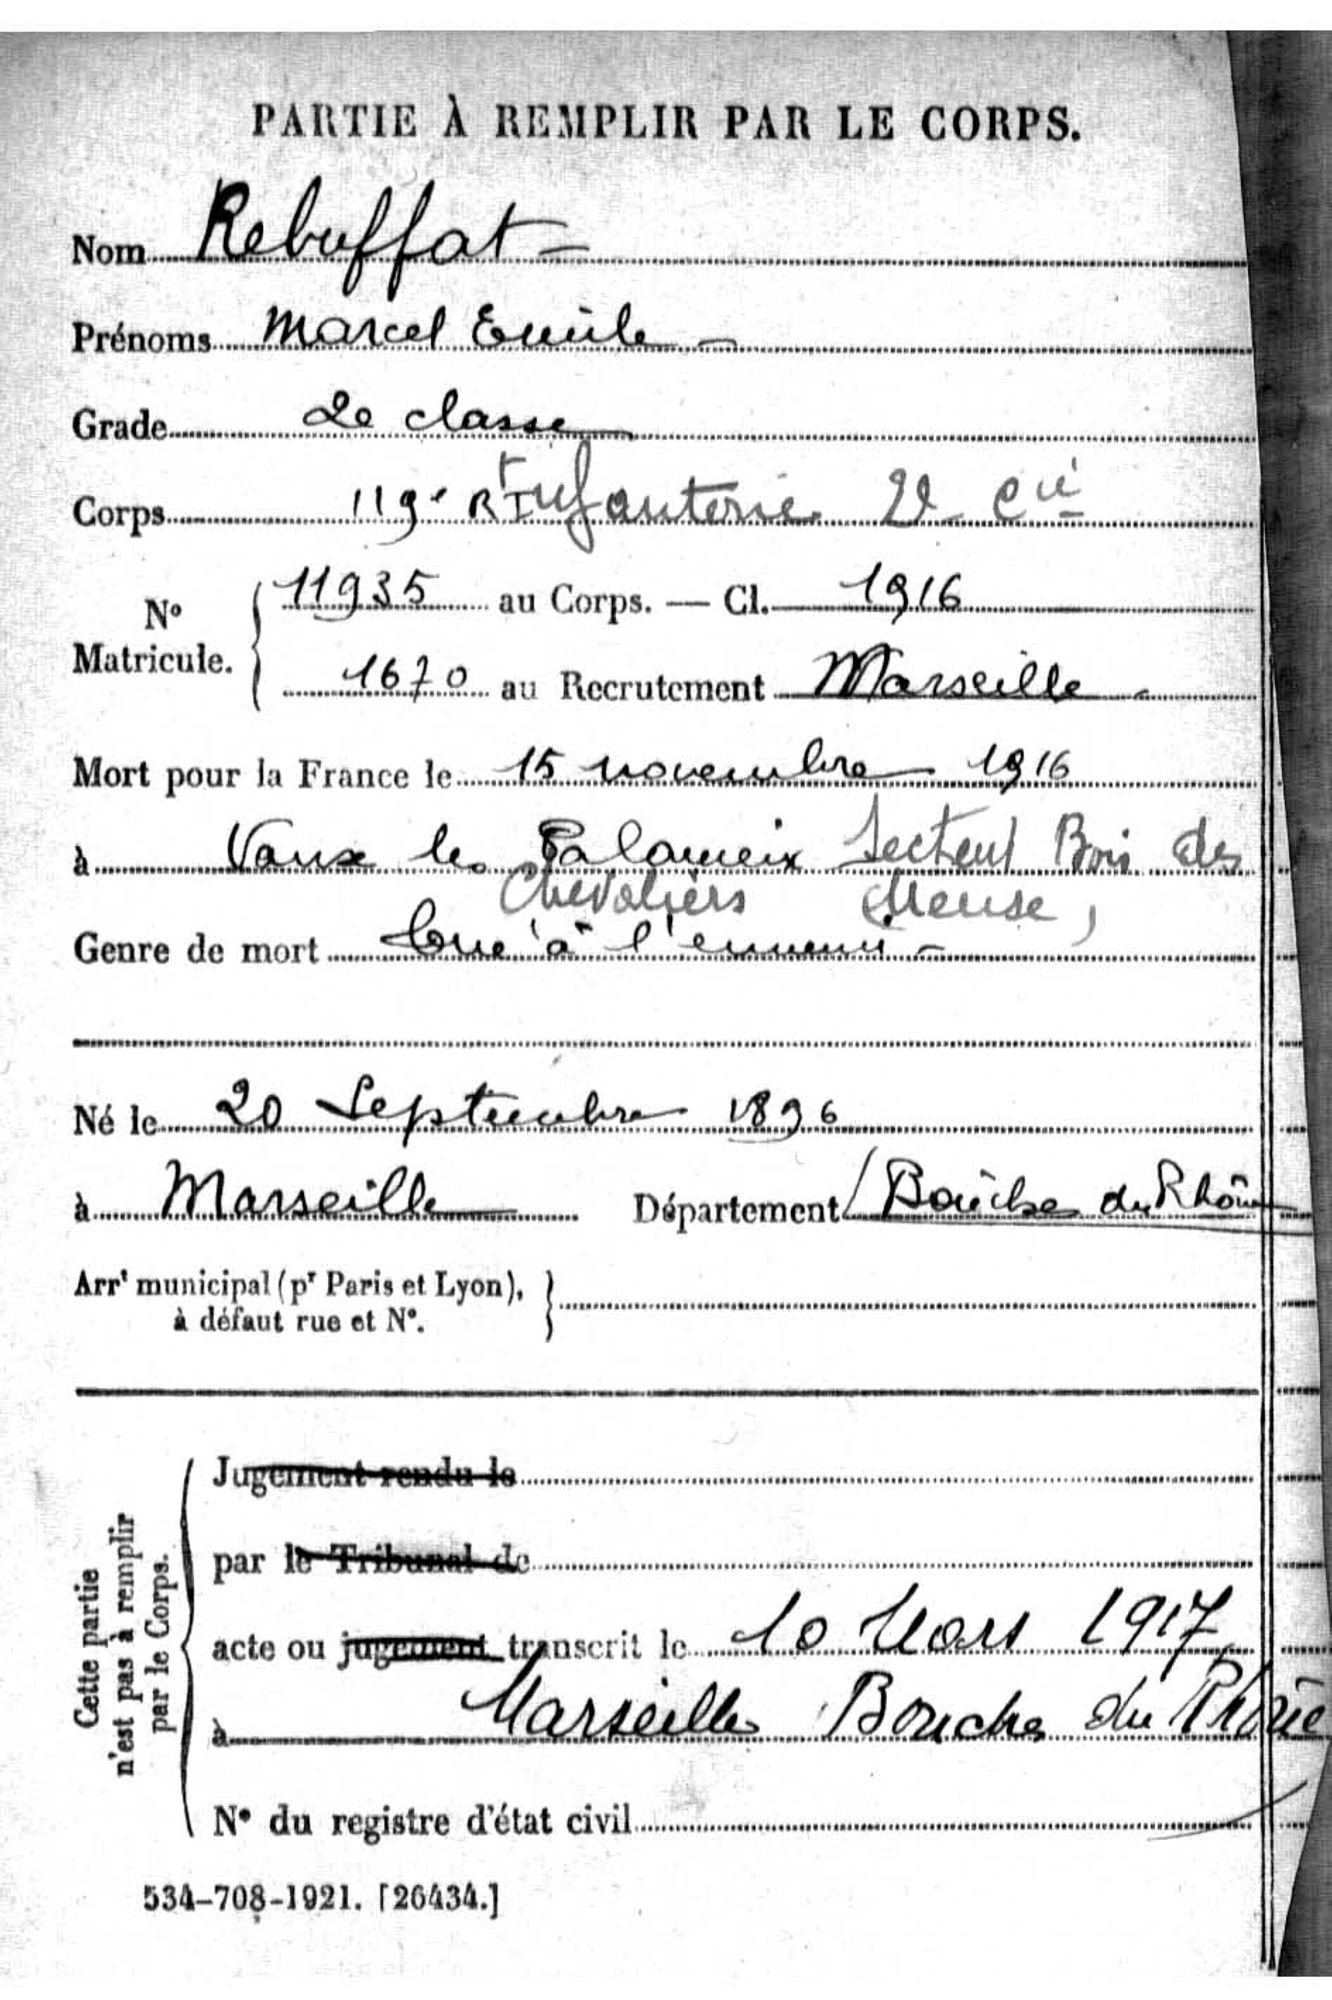 PARTIE À REMPLIR PAR LE CORPS.
Nom Rebuffat
Prénoms Marcel Emile
Grade 2e classe
Corps 119e Rt Infanterie 2e Cie
N° Matricule. 11935 au Corps. — Cl. 1916
1670 au Recrutement Marseille
Mort pour la France le 15 novembre 1916
à Vaux les Palameix Secteur Bois des
Chevaliers Meuse,
Genre de mort tué à l'ennemi
Né le 20 Septembre 1896
à Marseille Département Bouches du Rhône
Arrt municipal (pr Paris et Lyon),
à défaut rue et N°.
Cette partie
n'est pas à remplir
par le Corps.
Jugement rendu le
par le Tribunal de
acte ou jugement transcrit le 10 Mars 1917
à Marseille Bouches du Rhône
N° du registre d'état civil
534-708-1921. [26434.]